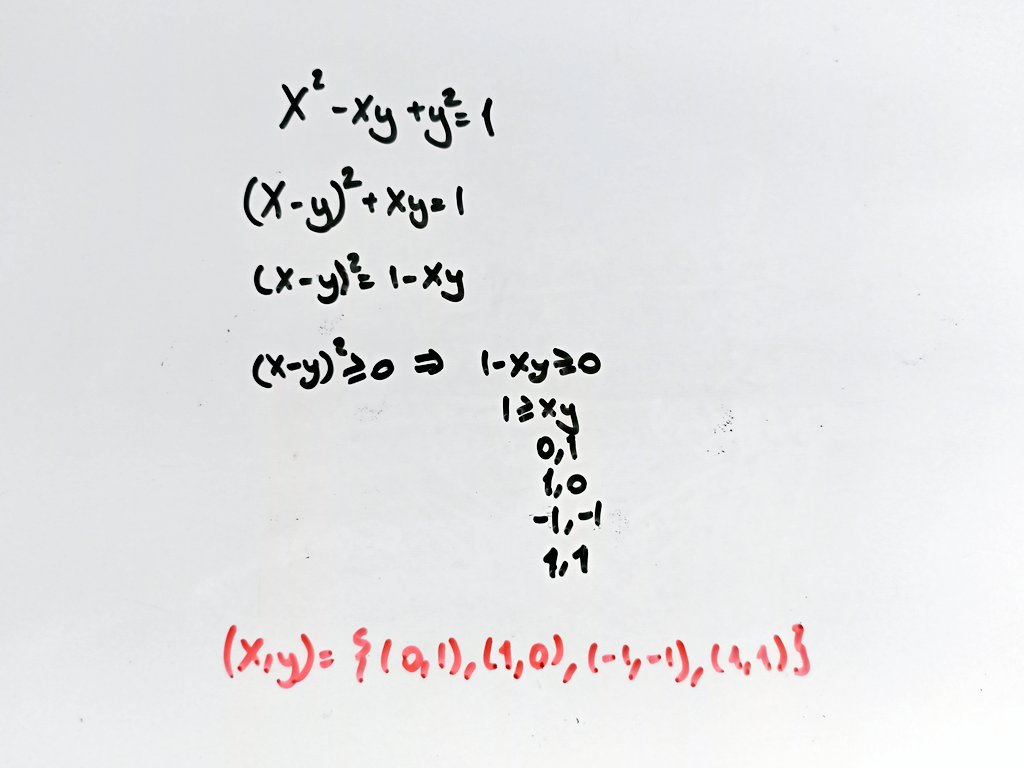 x² - xy + y² = 1
(x-y)² + xy = 1
(x-y)² = 1-xy
(x-y)² ≥ 0 ⇒ 1-xy ≥ 0
1 ≥ xy
0,1
1,0
-1,-1
1,1
(x,y) = {(0,1),(1,0),(-1,-1),(1,1)}